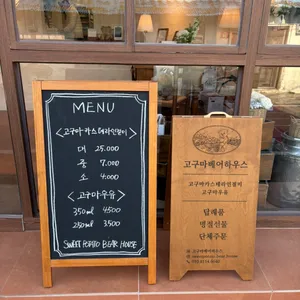 MENU
<고구마 카스테라인절미>
대 25.000
중 7.000
소 4.000
<고구마우유>
350ml 4500
250ml 3.500
SWEET POTATO BEAR HOUSE
고구마베어하우스
고구마카스테라인절미
고구마우유
답례품
명절선물
단체주문
고구마베어하우스